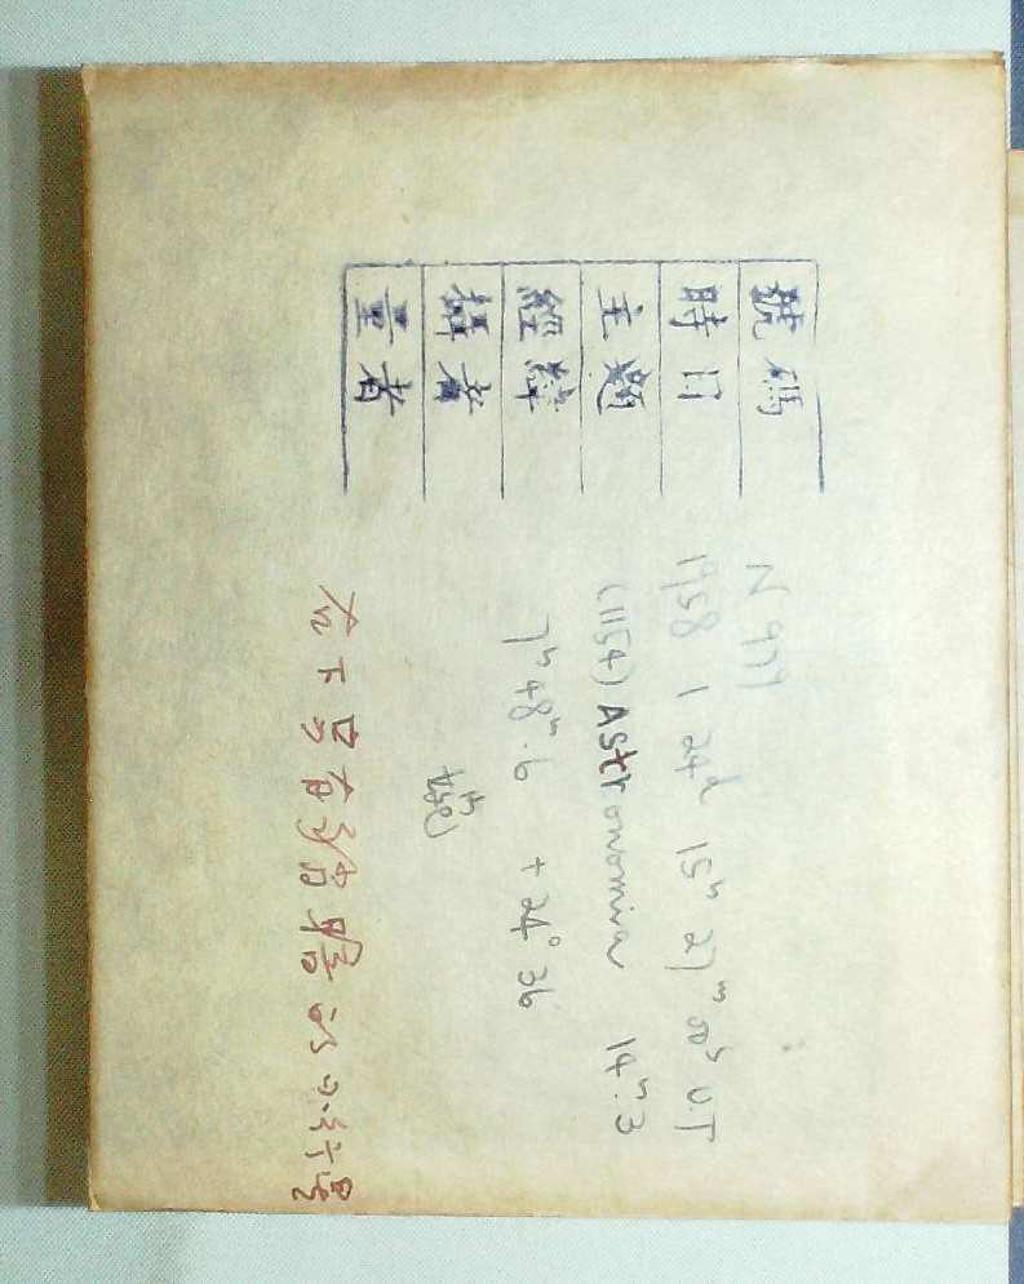 號碼 N 979
時日 1958 1 24d 15h 27m 00s U.T
主題 (1154) Astronomia 14m.3
經緯 7h48m.6 +24° 36
攝者
量者
下另有 的小行星